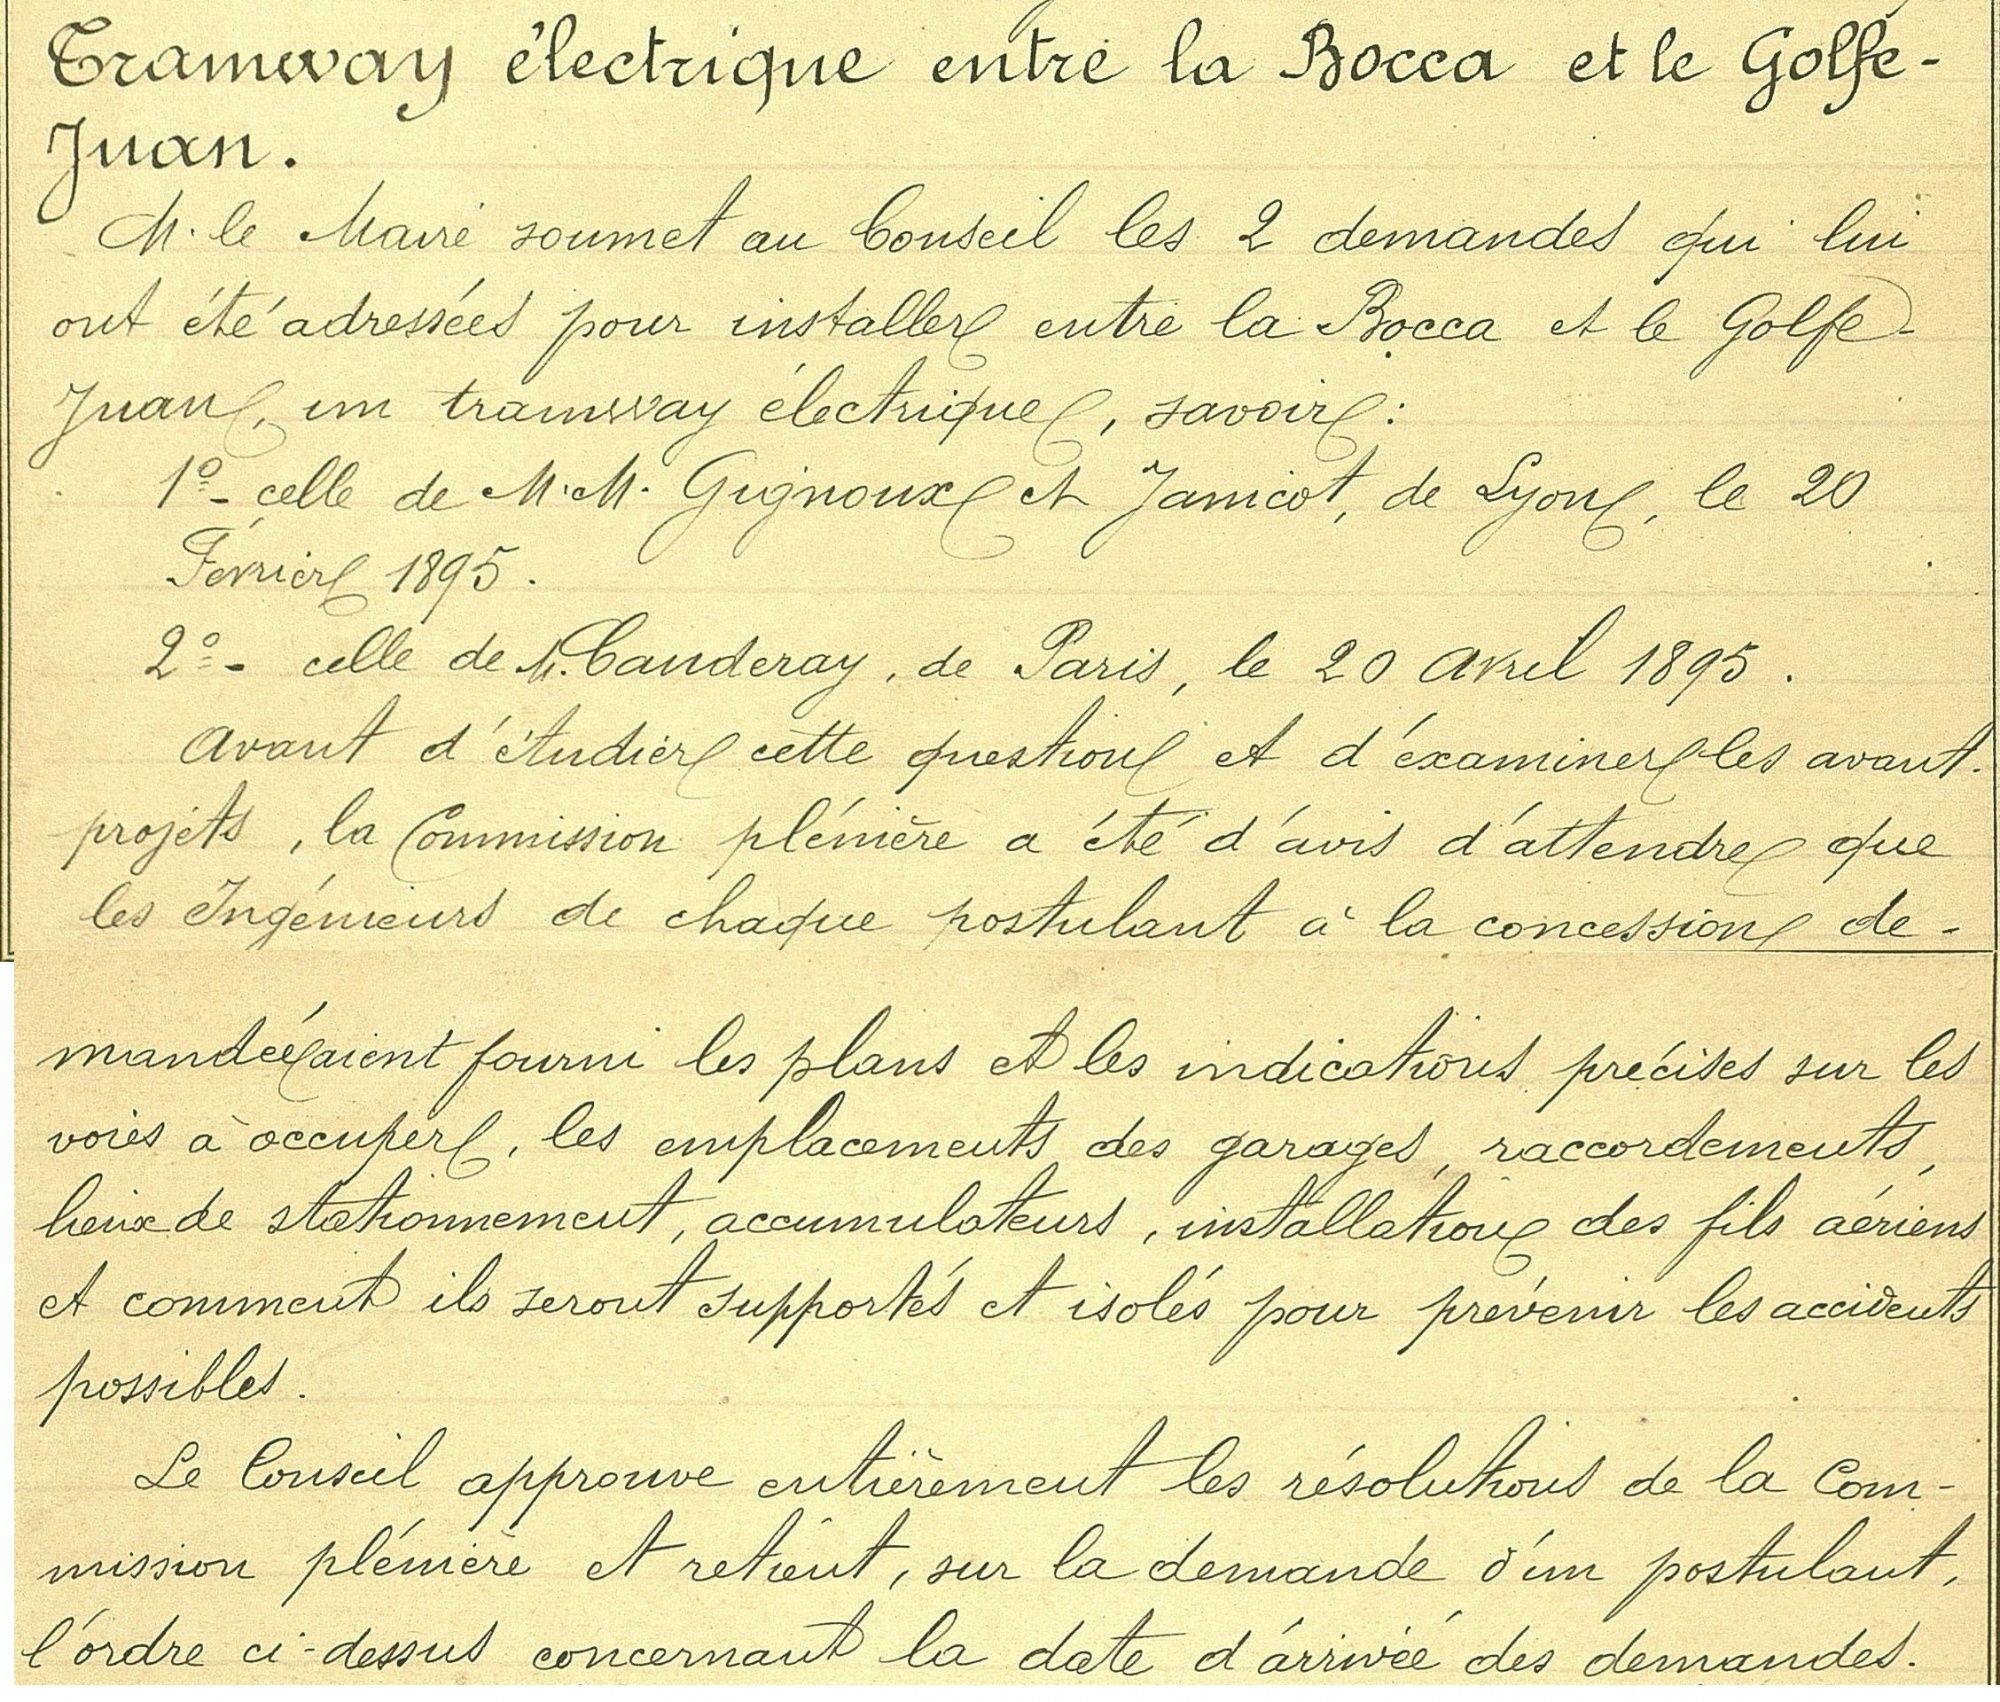 Tramway électrique entre la Bocca et le Golfe-
Juan.
M. le Maire soumet au Conseil les 2 demandes qui lui
ont été adressées pour installer entre la Bocca et le Golfe-
Juan, un tramway électrique, savoir :
1º- celle de M.M. Gignoux et Janicot, de Lyon, le 20
Février 1895.
2º- celle de M. Cauderay, de Paris, le 20 Avril 1895.
Avant d'étudier cette question et d'examiner les avant-
projets, la Commission plénière a été d'avis d'attendre que
les Ingénieurs de chaque postulant à la concession de-
mandée aient fourni les plans et les indications précises sur les
voies à occuper, les emplacements des garages, raccordements,
lieux de stationnement, accumulateurs, installation des fils aériens
et comment ils seront supportés et isolés pour prévenir les accidents
possibles.
Le Conseil approuve entièrement les résolutions de la Com-
mission plénière et retient, sur la demande d'un postulant,
l'ordre ci-dessus concernant la date d'arrivée des demandes.